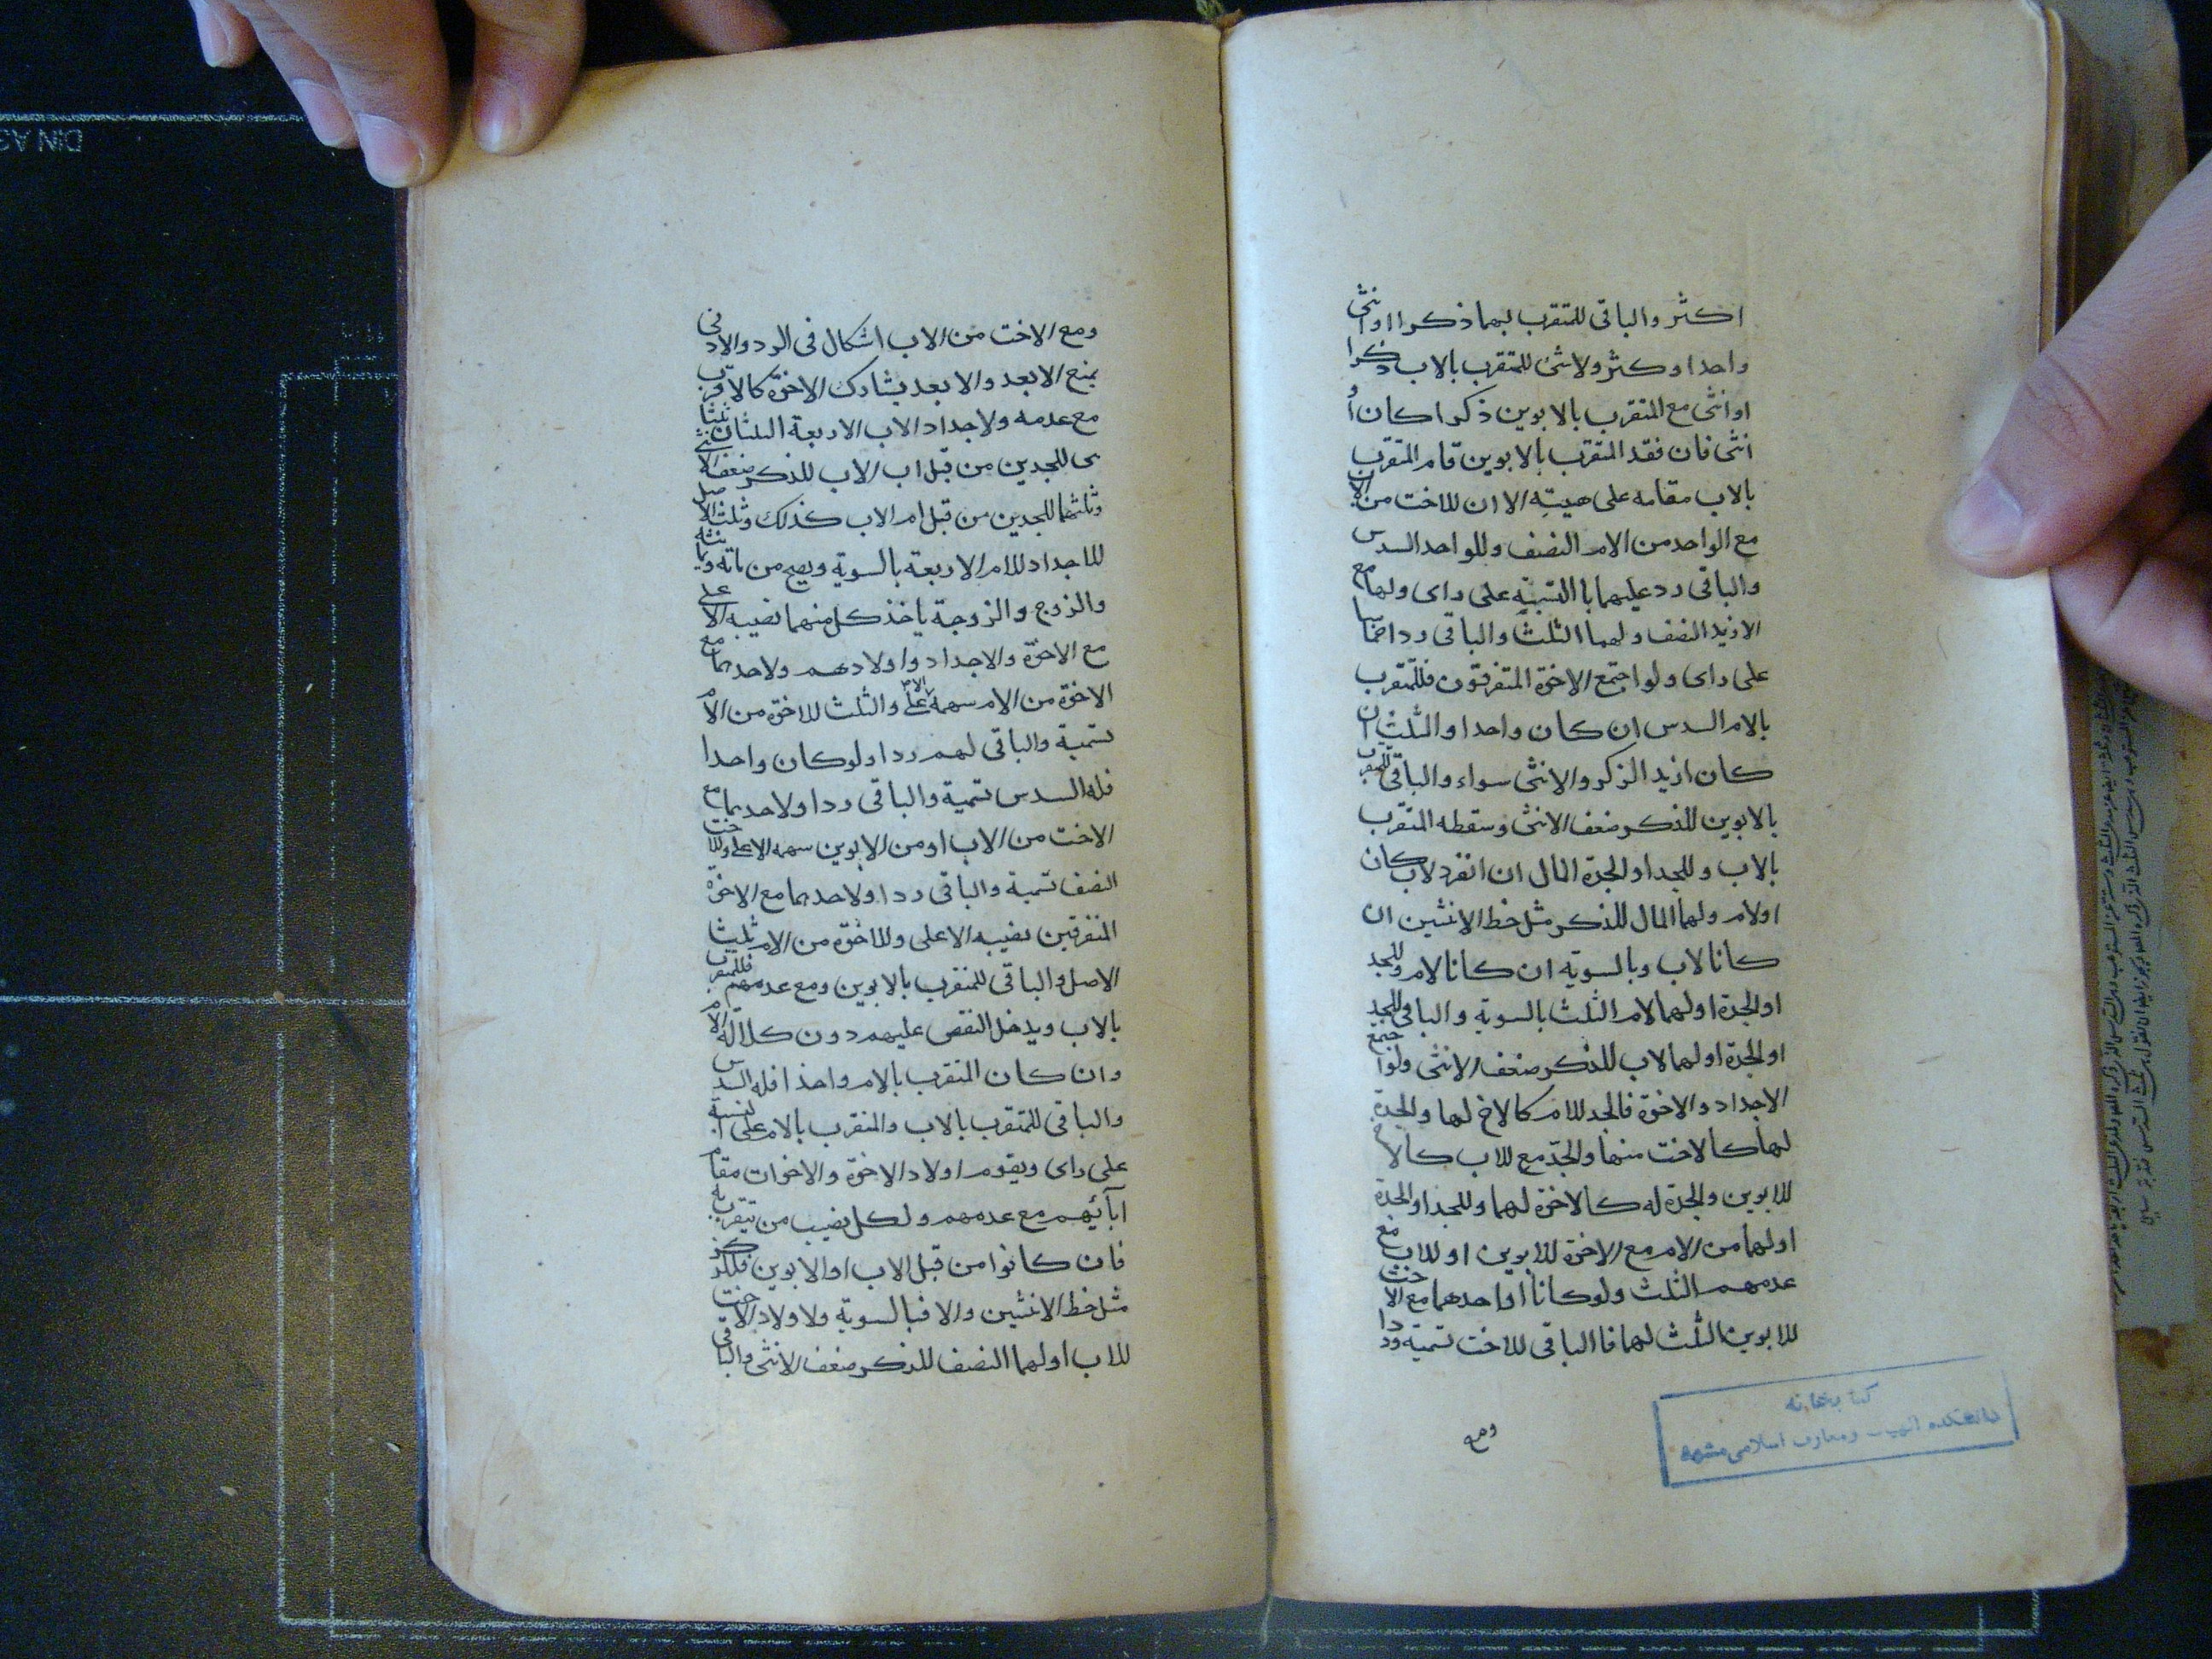 اكثر والباقى للمتقرب بهما ذكرا او انثى
واحدا و كثر ولا شئ للمتقرب بالاب ذكرا
او انثى مع المتقرب بالابوين ذكرا كان أو
انثى فان فقد المتقرب بالابوين قام المتقرب
بالاب مقامه على هيئته الا ان للاخت من الاب
مع الواحد من الام النصف وللواحد السدس
والباقى رد عليهما با النسبة على راى ولها مع
الازيد النصف ولهما الثلث والباقى رد اخماسا
على راى ولو اجتمع الاخوة المتفرقون فللمتقرب
بالام السدس ان كان واحدا والثلث ان
كان ازيد الذكر والانثى سواء والباقى للمتقرب
بالابوين للذكر ضعف الانثى وسقطه المتقرب
بالاب وللجد او الجدة المال ان انفرد لاب كان
اولام ولهما المال للذكر مثل حظ الانثيين ان
كانا لاب وبالسوية ان كانا لام وللجد
او الجدة او لهما لام الثلث بالسوية والباقى للجد
او الجدة او لهما لاب للذكر ضعف الانثى ولو اجتمع
الاجداد والاخوة فالجد للام كالاخ لها والجدة
لها كالاخت منها والجد مع للاب كالاخ
للابوين والجدة له كالاخوة لهما وللجد او الجدة
او لهما من الام مع الاخوة للابوين او للاب مع
عدمهم الثلث ولو كانا او احدهما مع الاخت
للابوين الثلث لهما فا الباقى للاخت تسمية وردا
ومع
كتابخانه
دانشكده الهيات ومعارف اسلامى مشهد
ومع الاخت من الاب اشكال فى الرد والادنى
يمنع الابعد والابعد يشارك الاخوة كالاقرب
مع عدمه ولاجداد الاب الاربعة الثلثان ثلثا
ى للجدين من قبل اب الاب للذكر ضعف الانثى
وثلثهما للجدين من قبل ام الاب كذلك وثلث الاصل
للاجداد للام الاربعة بالسوية ويصح من مائة وثمانية
والزوج والزوجة ياخذ كل منهما نصيبه الاعلى
مع الاخوة والاجداد واولادهم ولاحدهما مع
الاخوة من الام سهمه الاعلى والثلث للاخوة من الام
تسمية والباقى لهم ردا ولو كان واحدا
فله السدس تسمية والباقى ردا ولاحدهما مع
الاخت من الاب او من الابوين سهمه الاعلى وللاخت
النصف تسمية والباقى ردا ولاحدهما مع الاخوة
المتفرقين نصيبه الاعلى وللاخوة من الام ثلث
الاصل والباقى للمتقرب بالابوين ومع عدمهم فللمتقرب
بالاب ويدخل النقص عليهم دون كلالة الام
وان كان المتقرب بالام واحدا فله السدس
والباقى للمتقرب بالاب والمتقرب بالام على النسبة
على راى ويقوم اولاد الاخوة والاخوات مقام
ابآئيهم مع عدمهم ولكل نصيب من يتقرب به
فان كانوا من قبل الاب او الابوين فللذكر
مثل حظ الانثيين والا فبالسوية ولاولاد الاخت
للاب او لهما النصف للذكر ضعف الانثى والباقى